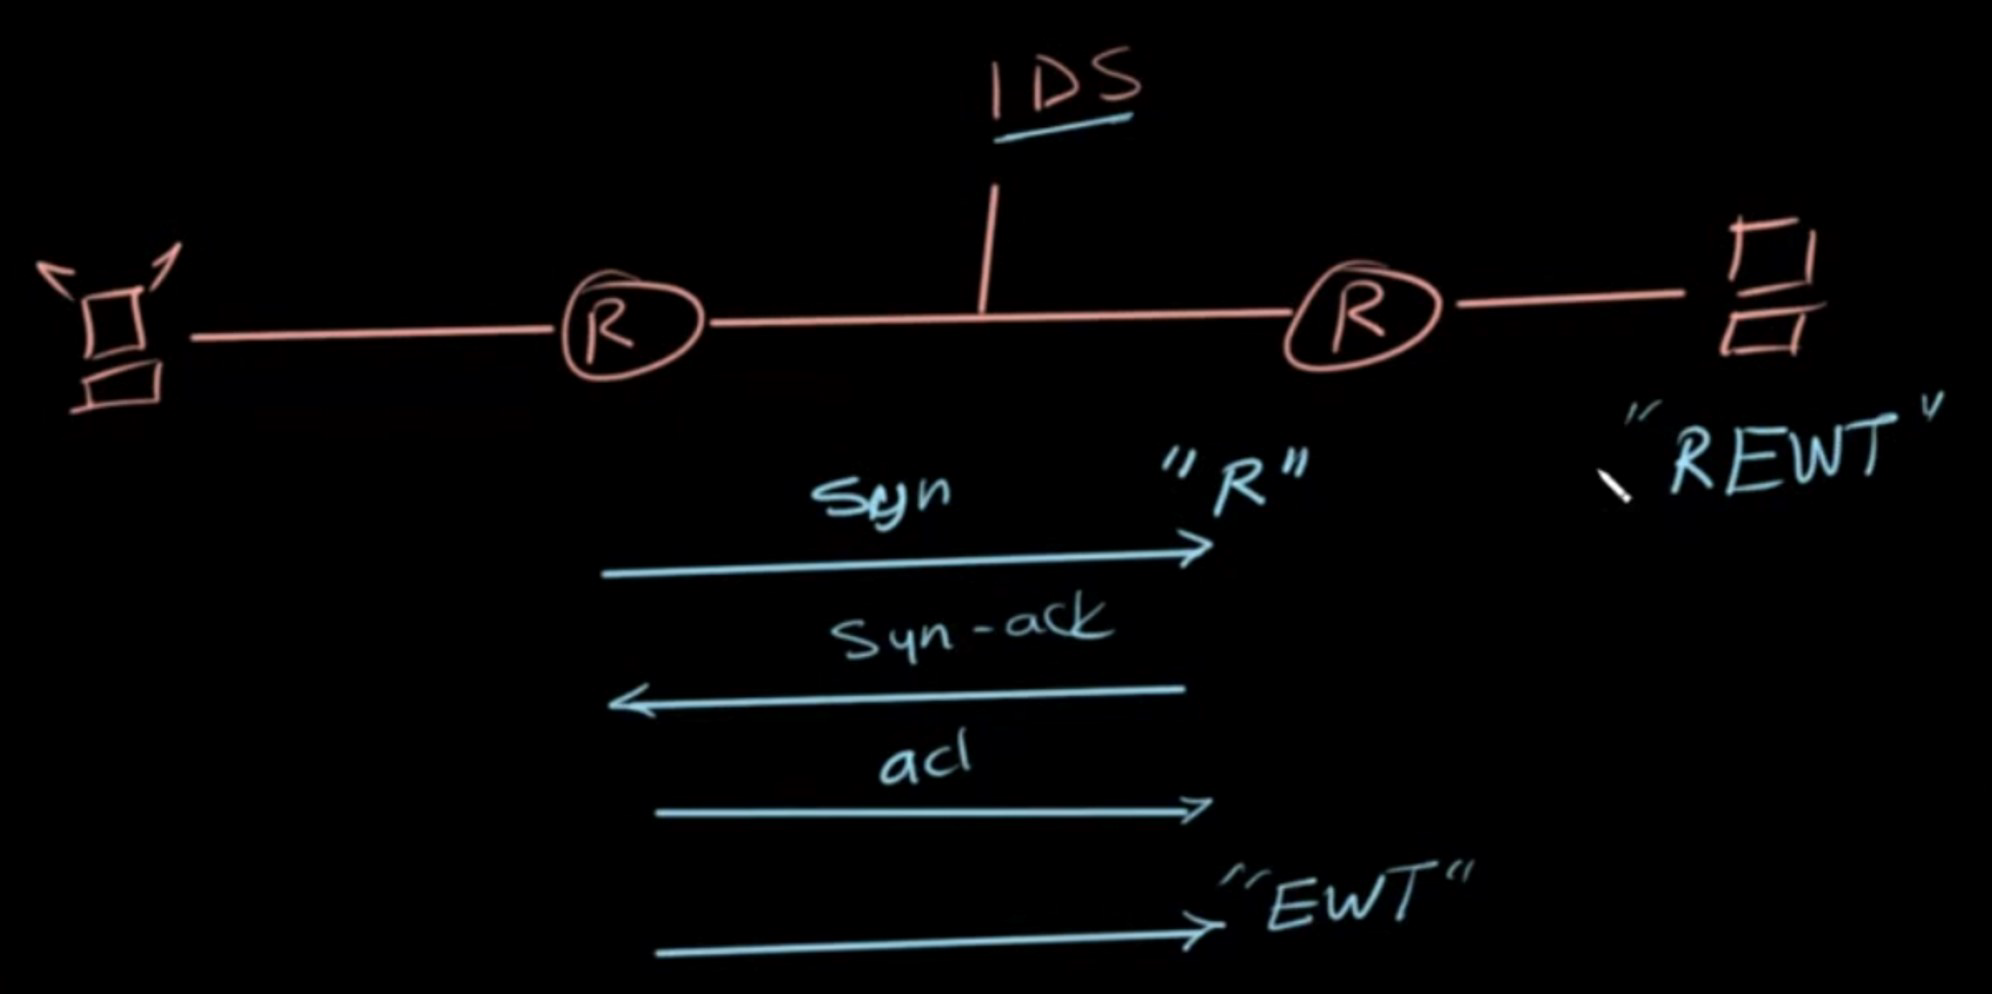 IDS
R
R
"REWT"
Syn "R"
Syn-ack
acl
"EWT"